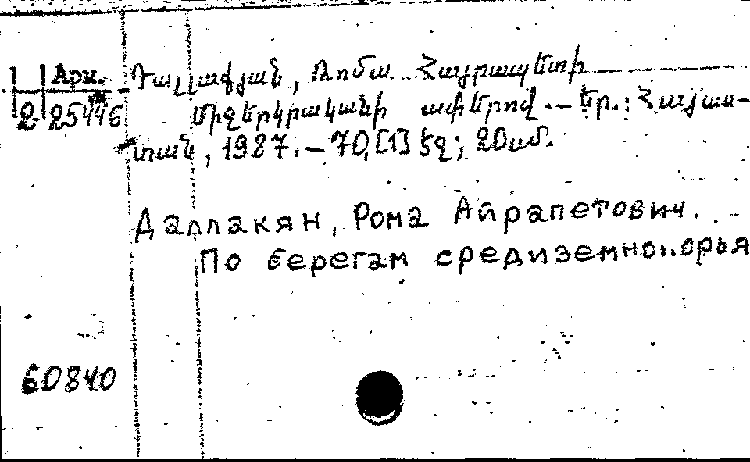 Арм.
2 25446
Դալլաքյան, Ռոմա Հայրապետի
Միջերկրականի ափերով. — Եր.: Հայաս-
տան, 1987. — 70,[1] էջ; 20սմ.
Даллакян, Рома Айрапетович.
По берегам средиземноморья
60840